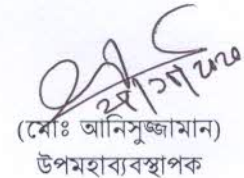 (মোঃ আনিসুজ্জামান)
উপমহাব্যবস্থাপক